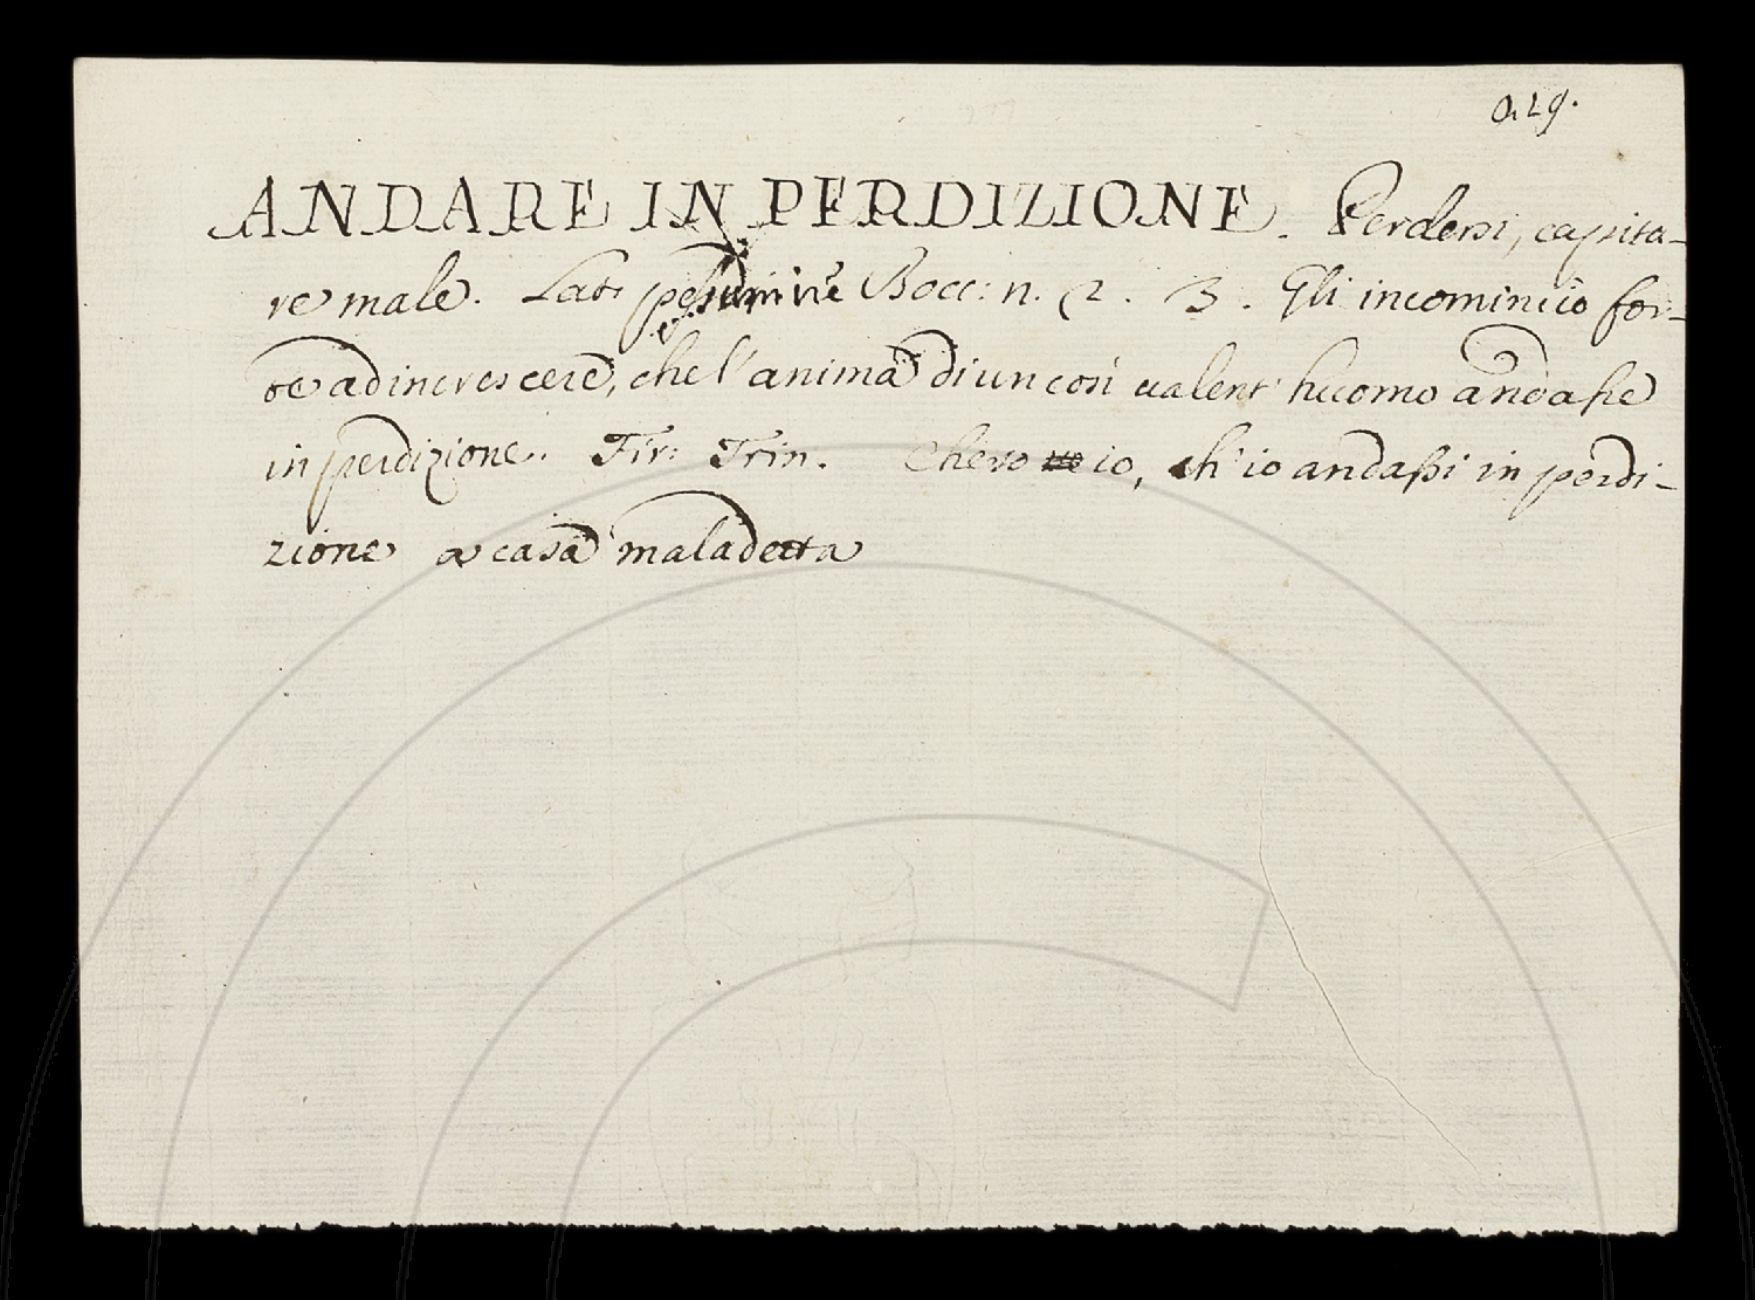 a. 29.
ANDARE IN PERDIZIONE. Perdersi, capita-
re male. Lat: pessum ire Bocc: n. 2. 3. Gli incominciò for-
te ad increscere, che l'anima di un così ualent' huomo andasse
in perdizione. Fir: Trin. Che vo io, ch' io andassi in perdi-
zione a casa maladetta